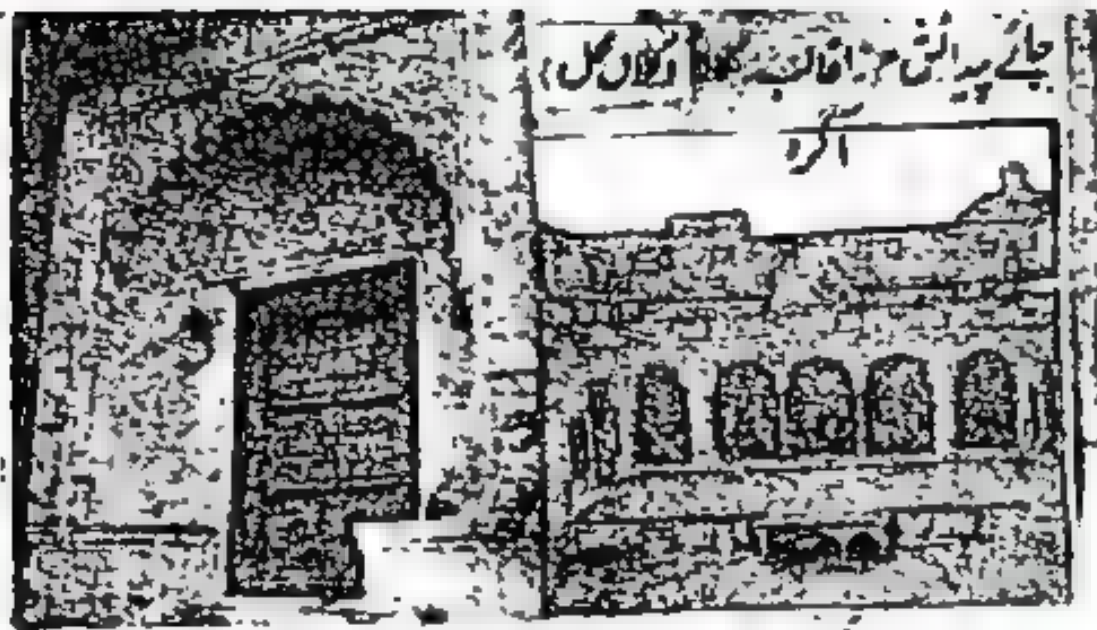 جائے پیدائش مرزا غالب (کلاں محل)
آگرہ